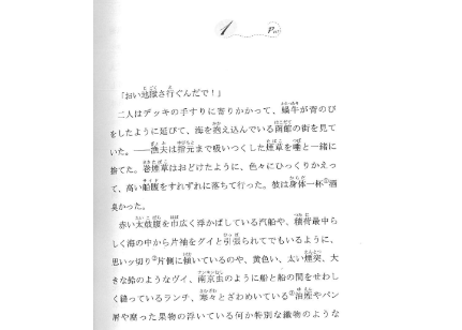 1
「おい地獄さ行ぐんだで！」
二人はデッキの手すりに寄りかかって、蝸牛が背のび
をしたように延びて、海を抱え込んでいる函館の街を見て
いた。——漁夫は指元まで吸いつくした煙草を唾と一緒に
捨てた。巻煙草はおどけたように、色々にひっくりかえっ
て、高い船腹をすれずれに落ちて行った。彼は身体一杯酒
臭かった。
赤い太鼓腹を巾広く浮かばしている汽船や、積荷最中ら
しく海の中から片袖をグイと引張られてでもいるように、
思いッ切り片側に傾いているのや、黄色い、太い煙突、大
きな鈴のようなヴイ、南京虫のように船と船の間をせわし
く縫っているランチ、寒々とざわめいている油煙やパン
屑や腐った果物の浮いている何か特別な織物のような